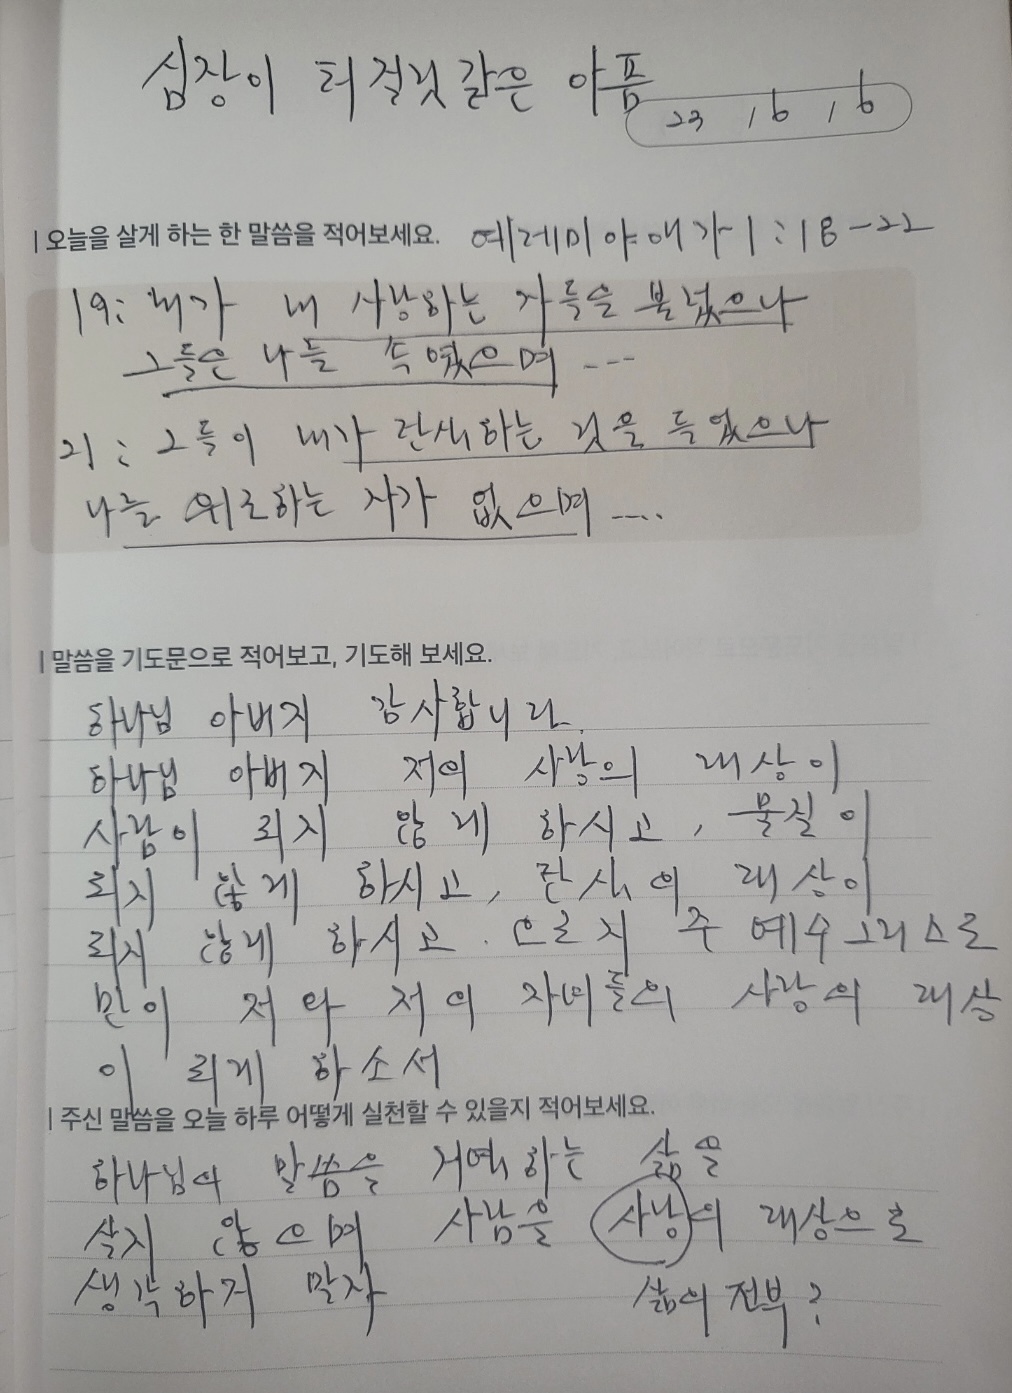 심장이 터질것 같은 아픔
23 / 6 / 6
| 오늘을 살게 하는 한 말씀을 적어보세요. 예레미야애가 1:18-22
19: 내가 내 사랑하는 자들을 불렀으나
그들은 나를 속였으며 ---
21: 그들이 내가 탄식하는 것을 들었으나
나를 위로하는 자가 없으며 ....
| 말씀을 기도문으로 적어보고, 기도해 보세요.
하나님 아버지 감사합니다.
하나님 아버지 저의 사랑의 대상이
사람이 되지 않게 하시고, 물질이
되지 않게 하시고, 탄식의 대상이
되지 않게 하시고. 오로지 주 예수그리스도
만이 저와 저의 자녀들의 사랑의 대상
이 되게 하소서
| 주신 말씀을 오늘 하루 어떻게 실천할 수 있을지 적어보세요.
하나님의 말씀을 거역하는 삶을
살지 않으며 사람을 사랑의 대상으로
생각하지 말자 삶의 전부?